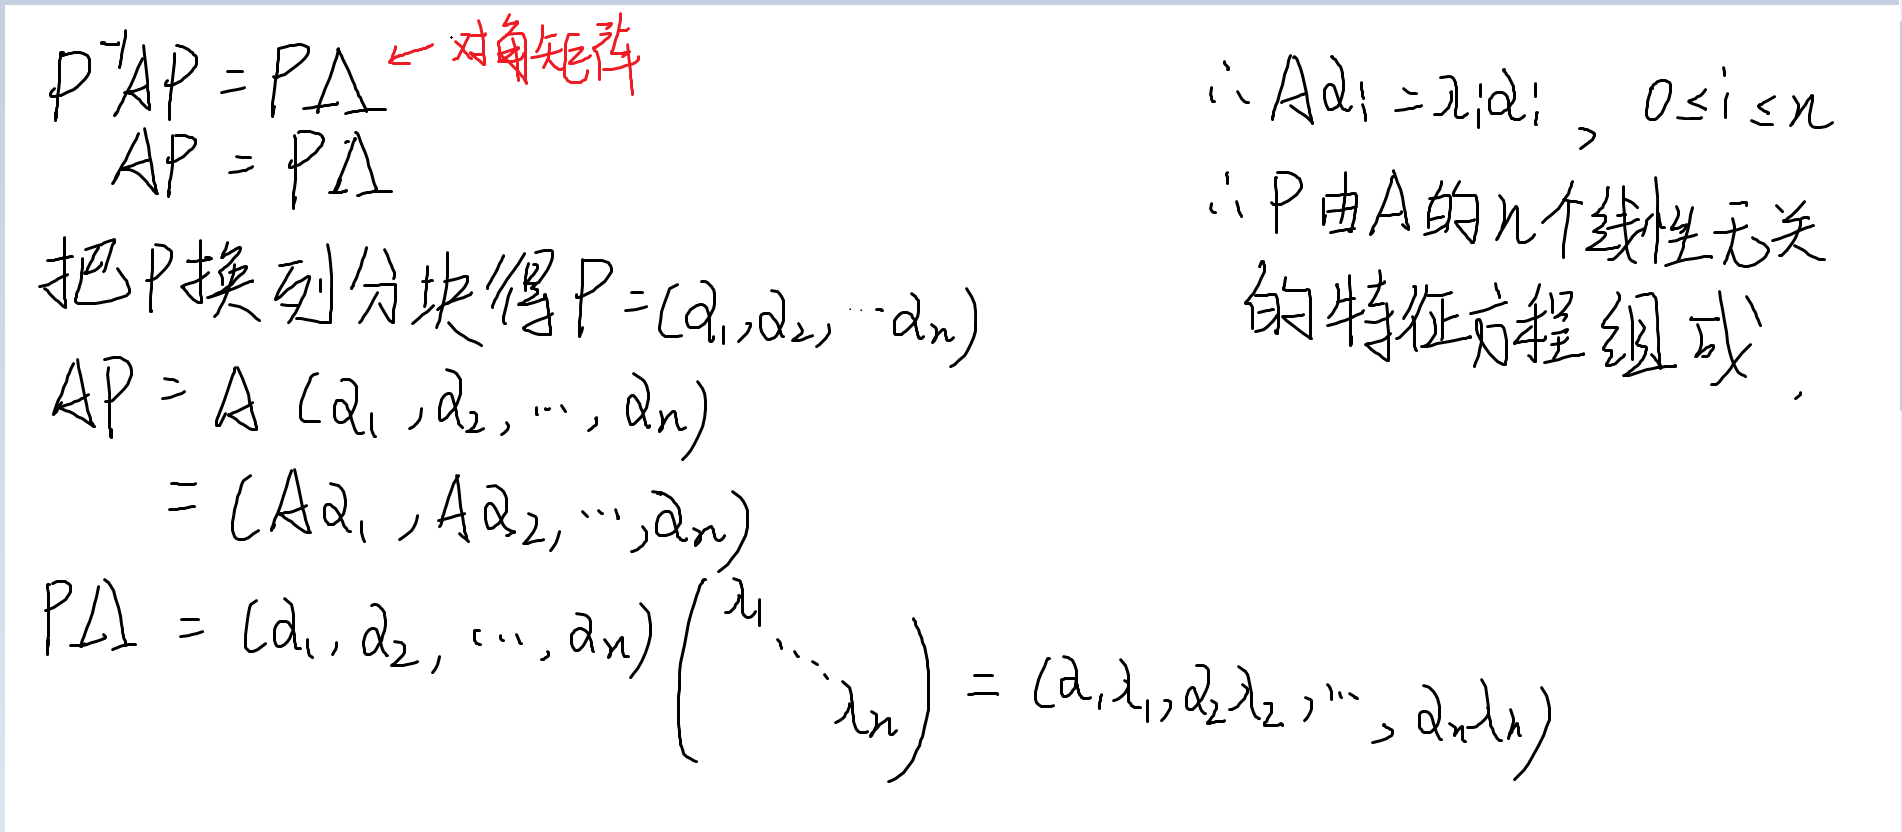 P⁻¹AP = PΛ ← 对角矩阵
AP = PΛ
把P换列分块得P=(α₁,α₂,…αₙ)
AP = A (α₁,α₂,…,αₙ)
= (Aα₁,Aα₂,…,αₙ)
PΛ = (α₁,α₂,…,αₙ)(λ₁ ⋱ λₙ) = (α₁λ₁,α₂λ₂,…,αₙλₙ)
∴ Aαᵢ = λᵢαᵢ, 0≤i≤n
∴ P由A的n个线性无关
的特征方程组成.